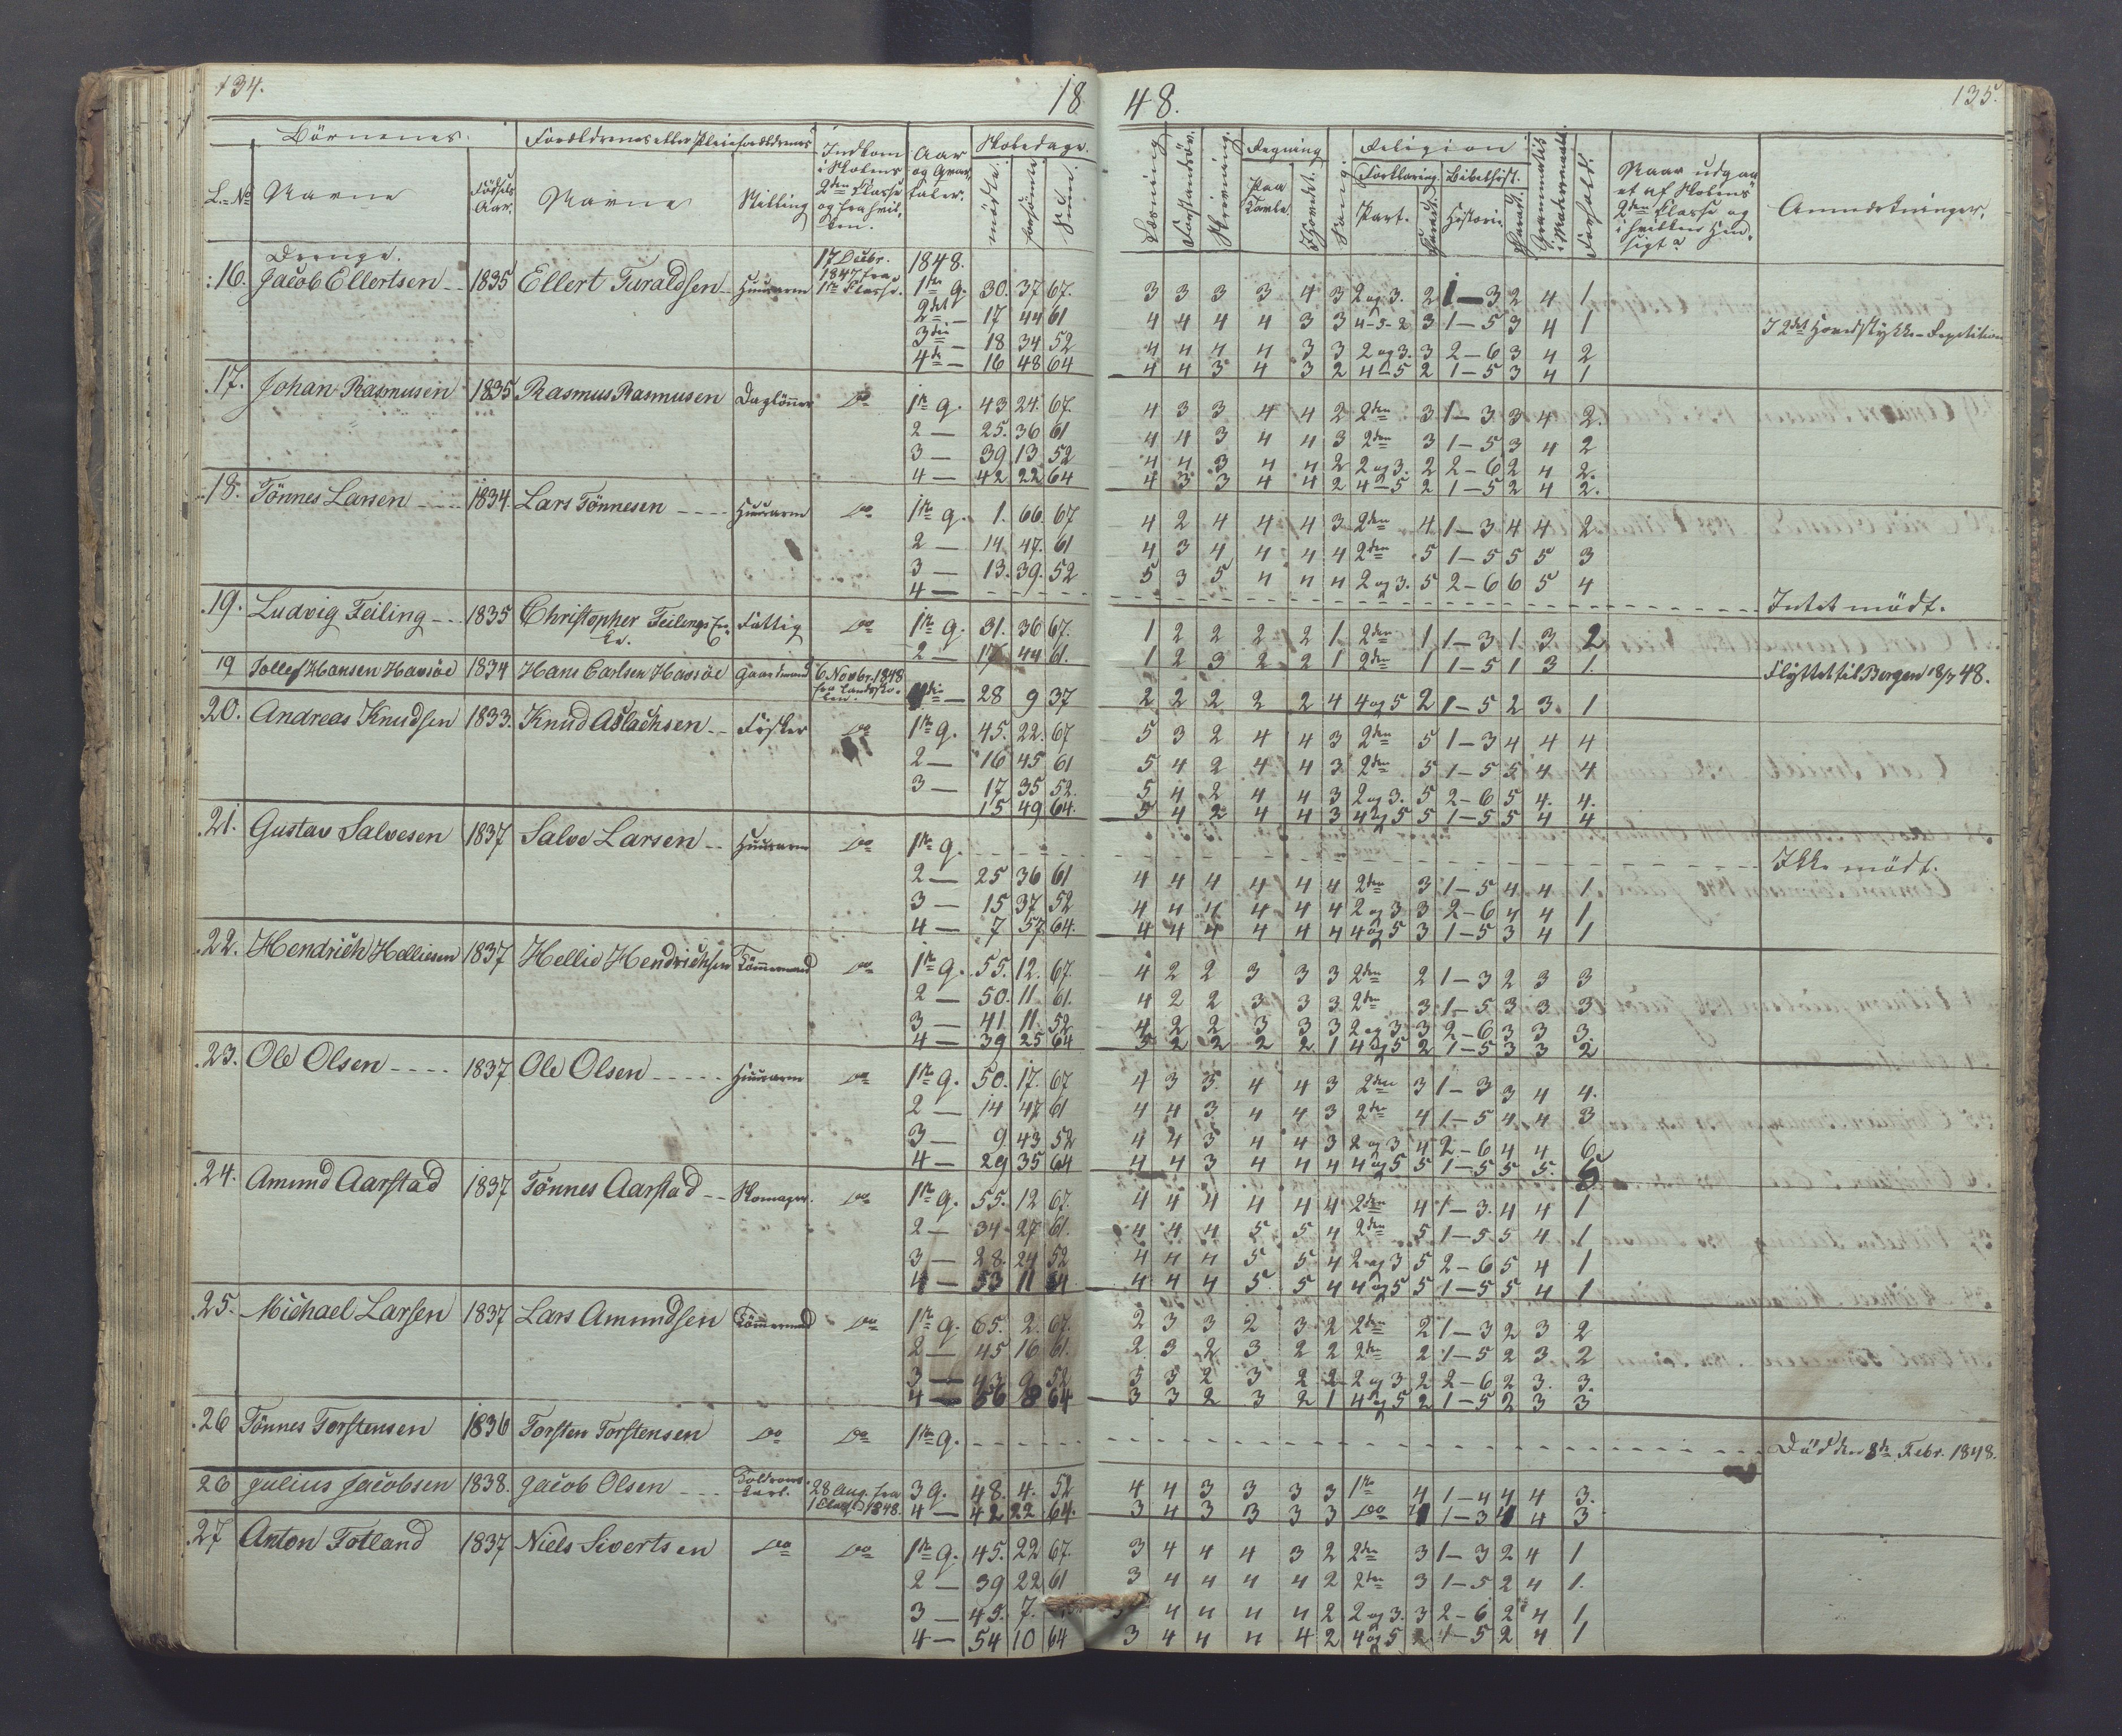 134.
18
48.
135.
Börnenes.
Forældrenes eller Pleieforældrenes
Indkom i Skolens 2den Klasse og fra hvilken.
Aar og Qvartaler.
Skoledage.
L. No
Navne
Födsels Aar.
Navne
Stilling
mödte.
forsömte
Sum.
Læsning
Skrivning.
Regning
Paa Tavle
Sang.
Religion
Forklaring.
Bibelhist.
Part.
Historie
Forhold.
Naar udgaaet af Skolens 2den Klasse og i hvilken Hensigt?
Anmærkninger.
Drenge.
16. Jacob Ellertsen 1835 Ellert Turaldsen Huusarm 17 Decbr. 1847 fra 1te Klasse. 1848. 1te Q. 30. 37 67. 3 3 3 3 4 3 2 og 3. 2 1–3 2 4 1
2det – 17 44 61 4 4 4 4 3 3 4-5-2 3 1–5 3 4 1 I 2det Hovedstykke – Repetition
3die – 18 34 52 4 4 4 4 3 3 2 og 3. 3 2–6 3 4 2
4de – 16 48 64 4 4 3 4 3 2 4–5 2 1–5 3 4 1
17. Johan Rasmusen 1835 Rasmus Rasmusen Daglönner Do 1te Q. 43 24. 67. 4 3 3 4 4 2 2den 3 1–3 3 4 2.
2 – 25. 36 61 4 4 3 4 4 3 2den 3 1–5 3 4 2
3 – 39 13 52 4 4 3 4 4 2 2 og 3. 2 2–6 2 4 2.
4 – 42 22 64 4 3 3 4 4 2 4–5 2 1–5 2 4 2.
18. Tönnes Larsen 1834. Lars Tönnesen Huusarm Do 1te Q. 1. 66. 67 4 2 4 4 4 3 2den 4 1–3 4 4 2
2 – 14 47. 61 4 3 4 4 4 4 2den 5 1–5 5 5 3
3 – 13. 39. 52 5 3 5 4 4 4 2 og 3. 5 2–6 6 5 4
4 – Intet mödt.
19. Ludvig Feiling 1835 Christopher Feilings Enke. Fattig Do 1te Q. 31. 36 67. 1 2 2 2 2 1 2den 1 1–3 1. 3 2
2 – 17 44 61. 1 2 3 2 2 1 2den 1 1–5 1 3 1. Flyttet til Bergen 18/7 48.
19 Tollef Hansen Havsöe 1834 Hans Carlsen Havsöe Gaardmand 6 Novbr. 1848 fra Landsskolen. 4die – 28 9 37 2 2 2 2 2 4 4 og 5 2 1–5 2 3. 1
20. Andreas Knudsen 1833. Knud Aslachsen Fisker Do 1te Q. 45. 22. 67 5 3 2 4 4 3 2den 5 1–3 4 4 4
2 – 16 45 61 5 4 2 4 4 3 2den 5 1–5 5 4 4
3 – 17 35 52. 5 4 2 4 4 3 2 og 3. 5 2–6 5 4. 4.
15 49 64. 5 4 2 4 4 3 4 og 5 5 1–5 5 4 4
21. Gustav Salvesen 1837 Salve Larsen Huusarm Do 1te Q. Ikke mödt.
2 – 25 36 61 4 4 4 4 4 4 2den 3 1–5 4 4 1
3 – 15 37 52 4 4 4 4 4 4 2 og 3 3 2–6 4 4 1
4 – 7 57 64. 4 4 4 4 4 4 4 og 5 3 1–5 3 4 1
22. Hendrich Helliesen 1837 Hellie Hendrichsen Tömmermand Do 1te Q. 55. 12. 67. 4 2 2 3 3 3 2den 2 1–3 2 3 3
2 – 50. 11 61. 4 2 2 3 3 3 2den 3 1–5 3 3 3
3 – 41 11. 52 4 2 2 3 3 3 2 og 3 3 2–6 3 3 3.
4 – 39 25 64 3 2 2 2 2 1 4 og 5 2 1–5 3 3 2
23. Ole Olsen 1837 Ole Olsen Huusarm Do 1te Q. 50. 17. 67 4 3 3 4 4 3 2den 3 1–3 3 4 4.
2 – 14 47 61 4 4 3 4 4 3 2den 4 1–5 4 4 3
3 – 9 43 52 4 4 3 4 4 3 2 og 3 4 2–6 4 4 6
4 – 29 35 64 4 4 3 4 4 4 4 og 5 5 1–5 5 5. 6
24. Amund Aarstad 1837 Tönnes Aarstad Skomager. Do 1te Q. 55. 12 67. 4 4 4 4 4 4 2den 4 1–3. 4 4 1
2 – 34 27 61. 4 4 4 5 5 4 2den 5 1–5 5 4 1
3 – 28. 24 52 4 4 4 5 5 4 2 og 3 5 2–6 5 4 1
4 – 53 11 64 4 4 4 5. 5 4 4 og 5 5 1–5 5 4 1
25. Michael Larsen 1837 Lars Amundsen Tömmermand Do 1te Q. 65. 2. 67. 2 3 3 2 3 2 2den 2 1–3 2 3 2
2 – 45 16 61. 2 3 2 3 2 2 2den 2 1–5 2 3 2
3 – 43 9 52 3 3 2 3 2 2 2 og 3 2 2–6 2 3. 3.
4 – 56 8 64 3 3 2 3 2 1 4 og 5 2 1–5 2 3 3
26 Tönnes Torstensen 1836 Torsten Torstensen Do Do 1te Q. Död den 8de Febr. 1848.
26 Julius Jacobsen 1838. Jacob Olsen 28 Aug. fra 1 Class 1848. 3 Q. 48. 4. 52 4 4 3 3 3 3 1te 4 1–4 4 4 3.
4 – 42 22 64. 3 4 3 3 3 3 Do 4 1–3 4 4 3
27 Anton Totland 1837 Niels Sivertsen Do Do 1te Q. 45. 22 67. 3 4 4 4 3 2 2den 3 1–3 2 4 1
2 – 39 22 61 3 4 4 4 4 2 2den 3 1–5 2 4 1.
3 – 45. 7. 4 4 4 4 2 2 og 3. 3 2–6 2 4 1
4 – 54 10 64 3 4 4 4 4 2 4 og 5 2 1–5 2 4 1